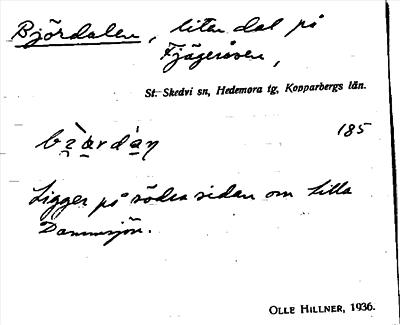 Björdalen, liten dal på
Fjägeråsen,
St. Skedvi sn, Hedemora tg, Kopparbergs län.
185
Ligger på södra sidan om Lilla
Dammsjön.
OLLE HILLNER, 1936.